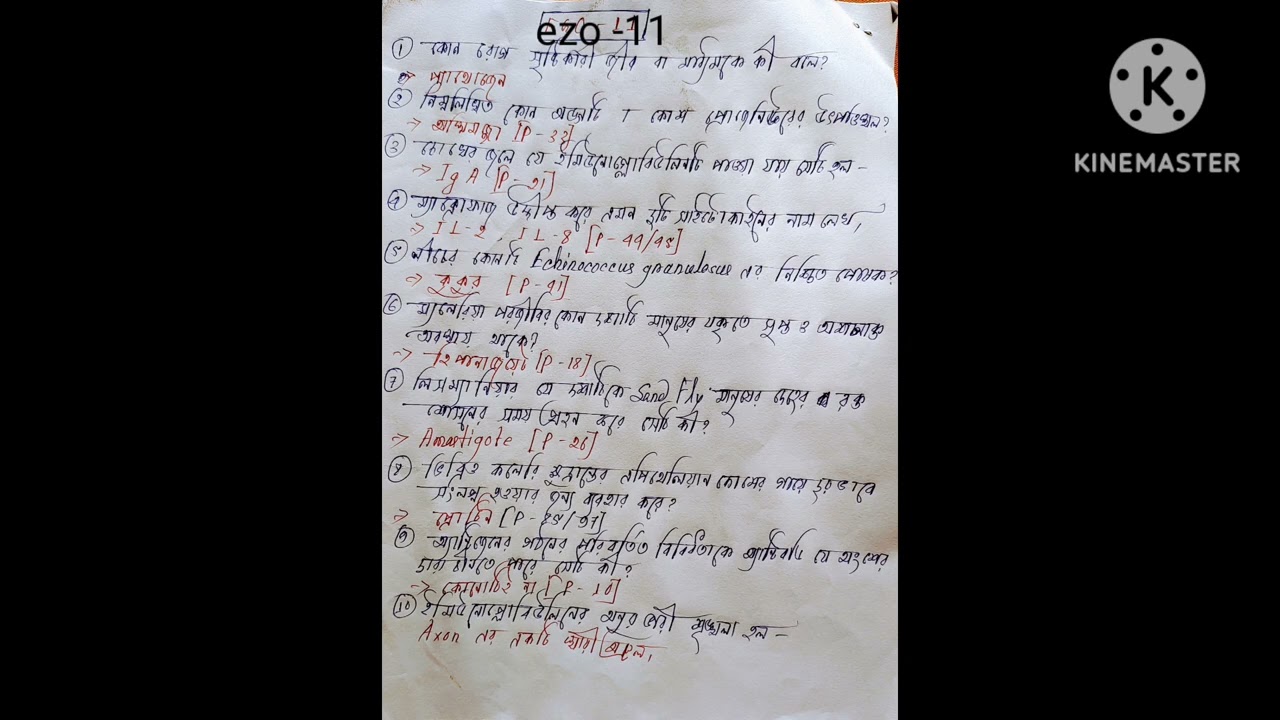 ezo -11
① কোন রোগ সৃষ্টিকারী জীব বা মাধ্যমকে কী বলে?
⇒ প্যাথোজেন
② নিম্নলিখিত কোন অঙ্গটি T কোশ প্রোজেনিটরের উৎপত্তিস্থল?
→ অস্থিমজ্জা [P-33]
③ চোখের জলে যে ইমিউনোগ্লোবিউলিনটি পাওয়া যায় সেটি হল -
→ Ig A [P-31]
④ ম্যাক্রোফাজ উদ্দীপ্ত করে এমন দুটি সাইটোকাইনের নাম লেখ,
→ IL-2, IL-8 [P-44/45]
⑤ নীচের কোনটি Echinococcus granulosus এর নিশ্চিত পোষক?
→ কুকুর [P-41]
⑥ ম্যালেরিয়া পরজীবির কোন দশাটি মানুষের যকৃতে সুপ্ত ও
অবস্থায় থাকে?
→ হিপনোজয়েট [P-18]
⑦ লিসম্যানিয়ার যে দশাটিকে Sand Fly মানুষের দেহের রক্ত
শোষনের সময় গ্রহন করে সেটি কী?
→ Amastigote [P-26]
⑧ ভিব্রিও কলেরি ক্ষুদ্রান্ত্রের এপিথেলিয়াল কোষের গায়ে দৃঢ়ভাবে
সংলগ্ন হওয়ার জন্য ব্যবহার করে?
→ প্রোটিন
⑨ অ্যান্টিজেনের গঠনের পরিবর্তিত বিন্যাসকে অ্যান্টিবডি যে অংশের
দ্বারা চিনতে পারে সেটি কী?
→ [P-10]
⑩ ইমিউনোগ্লোবিউলিনের শৃঙ্খলা হল -
Axon এর একটি ভারী
KINEMASTER